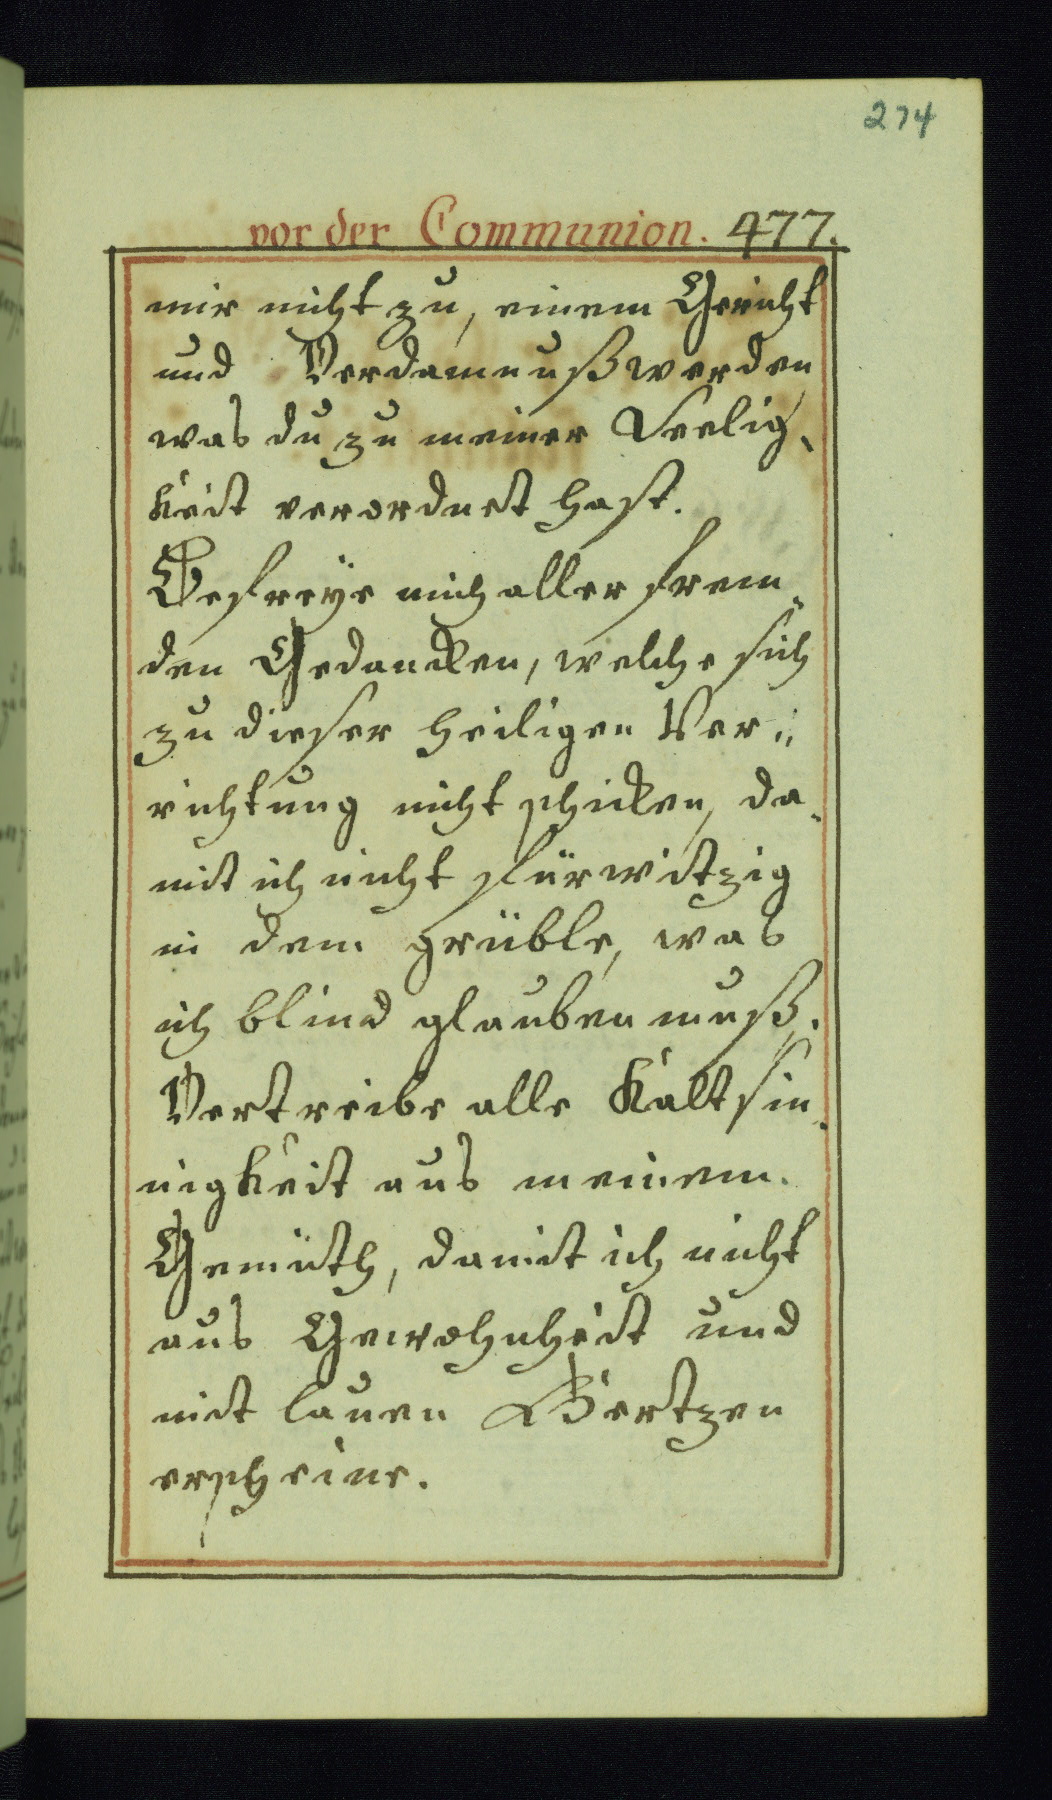 274
vor der Communion. 477.
mir nicht zu, einem Gericht
und Verdamnuß werden
was du zu meiner Seelig¬
keit verordnet hast.
Befreÿe mich aller frem¬
den Gedancken, welche sich
zu dieser heiligen Ver¬
richtung nicht schicken, da¬
mit ich nicht fürwitzig
in dem grüble, was
ich blind glauben muß.
Vertreibe alle Kaltsin¬
nigkeit aus meinem.
Gemüth, damit ich nicht
aus Gewohnheit und
mit lauen Hertzen
erscheine.